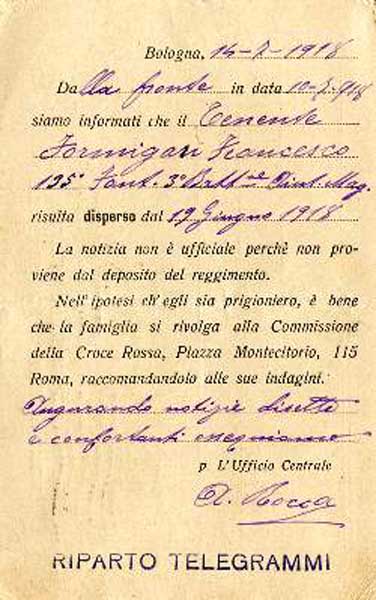 Bologna, 14-7-1918
Dalla fronte in data 10-7-918
siamo informati che il Tenente
Formigari Francesco
135° Fant. 3° Batt.ne Aiut. Mag.
risulta disperso dal 19 Giugno 1918
La notizia non è ufficiale perchè non pro-
viene dal deposito del reggimento.
Nell'ipotesi ch'egli sia prigioniero, è bene
che la famiglia si rivolga alla Commissione
della Croce Rossa, Piazza Montecitorio, 115
Roma, raccomandandolo alle sue indagini.
Augurando notizie dirette
e confortanti ossequiamo
p L'Ufficio Centrale
A. Rocca
RIPARTO TELEGRAMMI